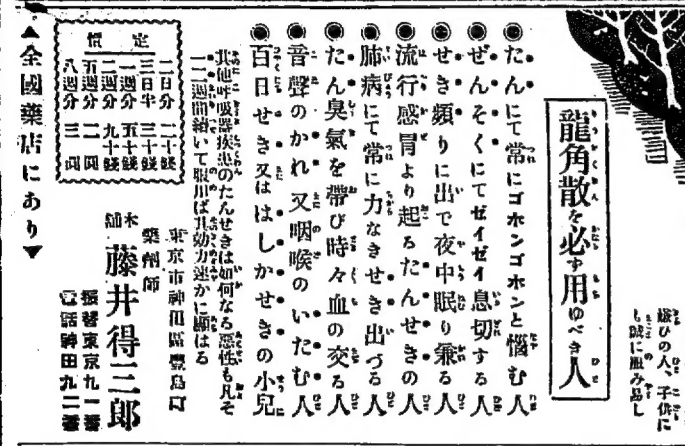 嫌ひの人、子供に
も誠に服み易し
龍角散を必ず用ゆべき人
◉たんにて常にゴホンゴホンと悩む人
◉ぜんそくにてゼイゼイ息切する人
◉せき頻りに出で夜中眠り兼る人
◉流行感冒より起るたんせきの人
◉肺病にて常に力なきせき出づる人
◉たん臭氣を帶び時々血の交る人
◉音聲のかれ又咽喉のいたむ人
◉百日せき又はしかせきの小兒
其他呼吸器疾患のたんせきは如何なる惡性も凡そ
一二週間續いて服用ば其効力速かに顯はる
定價
二日分 二十錢
三日半 三十錢
一週分 五十錢
二週分 九十錢
五週分 二圓
八週分 三圓
東京市神田區豊島町
藥劑師
本舗 藤井得三郎
振替東京九一番
電話神田九二番
▲全國藥店にあり▼